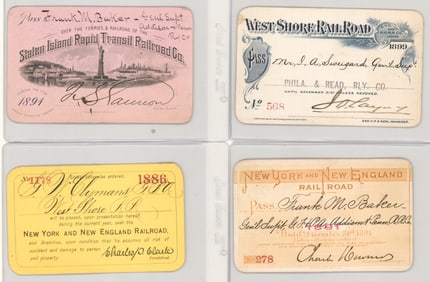 Pass Frank M. Baker - Genl Supt
OVER THE FERRIES & RAILROAD OF THE
Staten Island Rapid Transit Railroad Co.
1891
WEST SHORE RAILROAD
1899
PASS
Mr. I. A. Sweigard Genl Supt
PHILA. & READ. RLY. CO.
UNTIL DECEMBER 31ST UNLESS
No 568
otherwise ordered,
1886
No 1178
West Shore R.R.
will be passed, upon presentation hereof
during the current year, over the
NEW YORK AND NEW ENGLAND RAILROAD,
and Branches, upon condition that he assumes all risk of
accident and damage to person
and property.
President.
NEW YORK AND NEW ENGLAND
RAILROAD
PASS Frank M. Baker
Until December 31st 1891
No 278